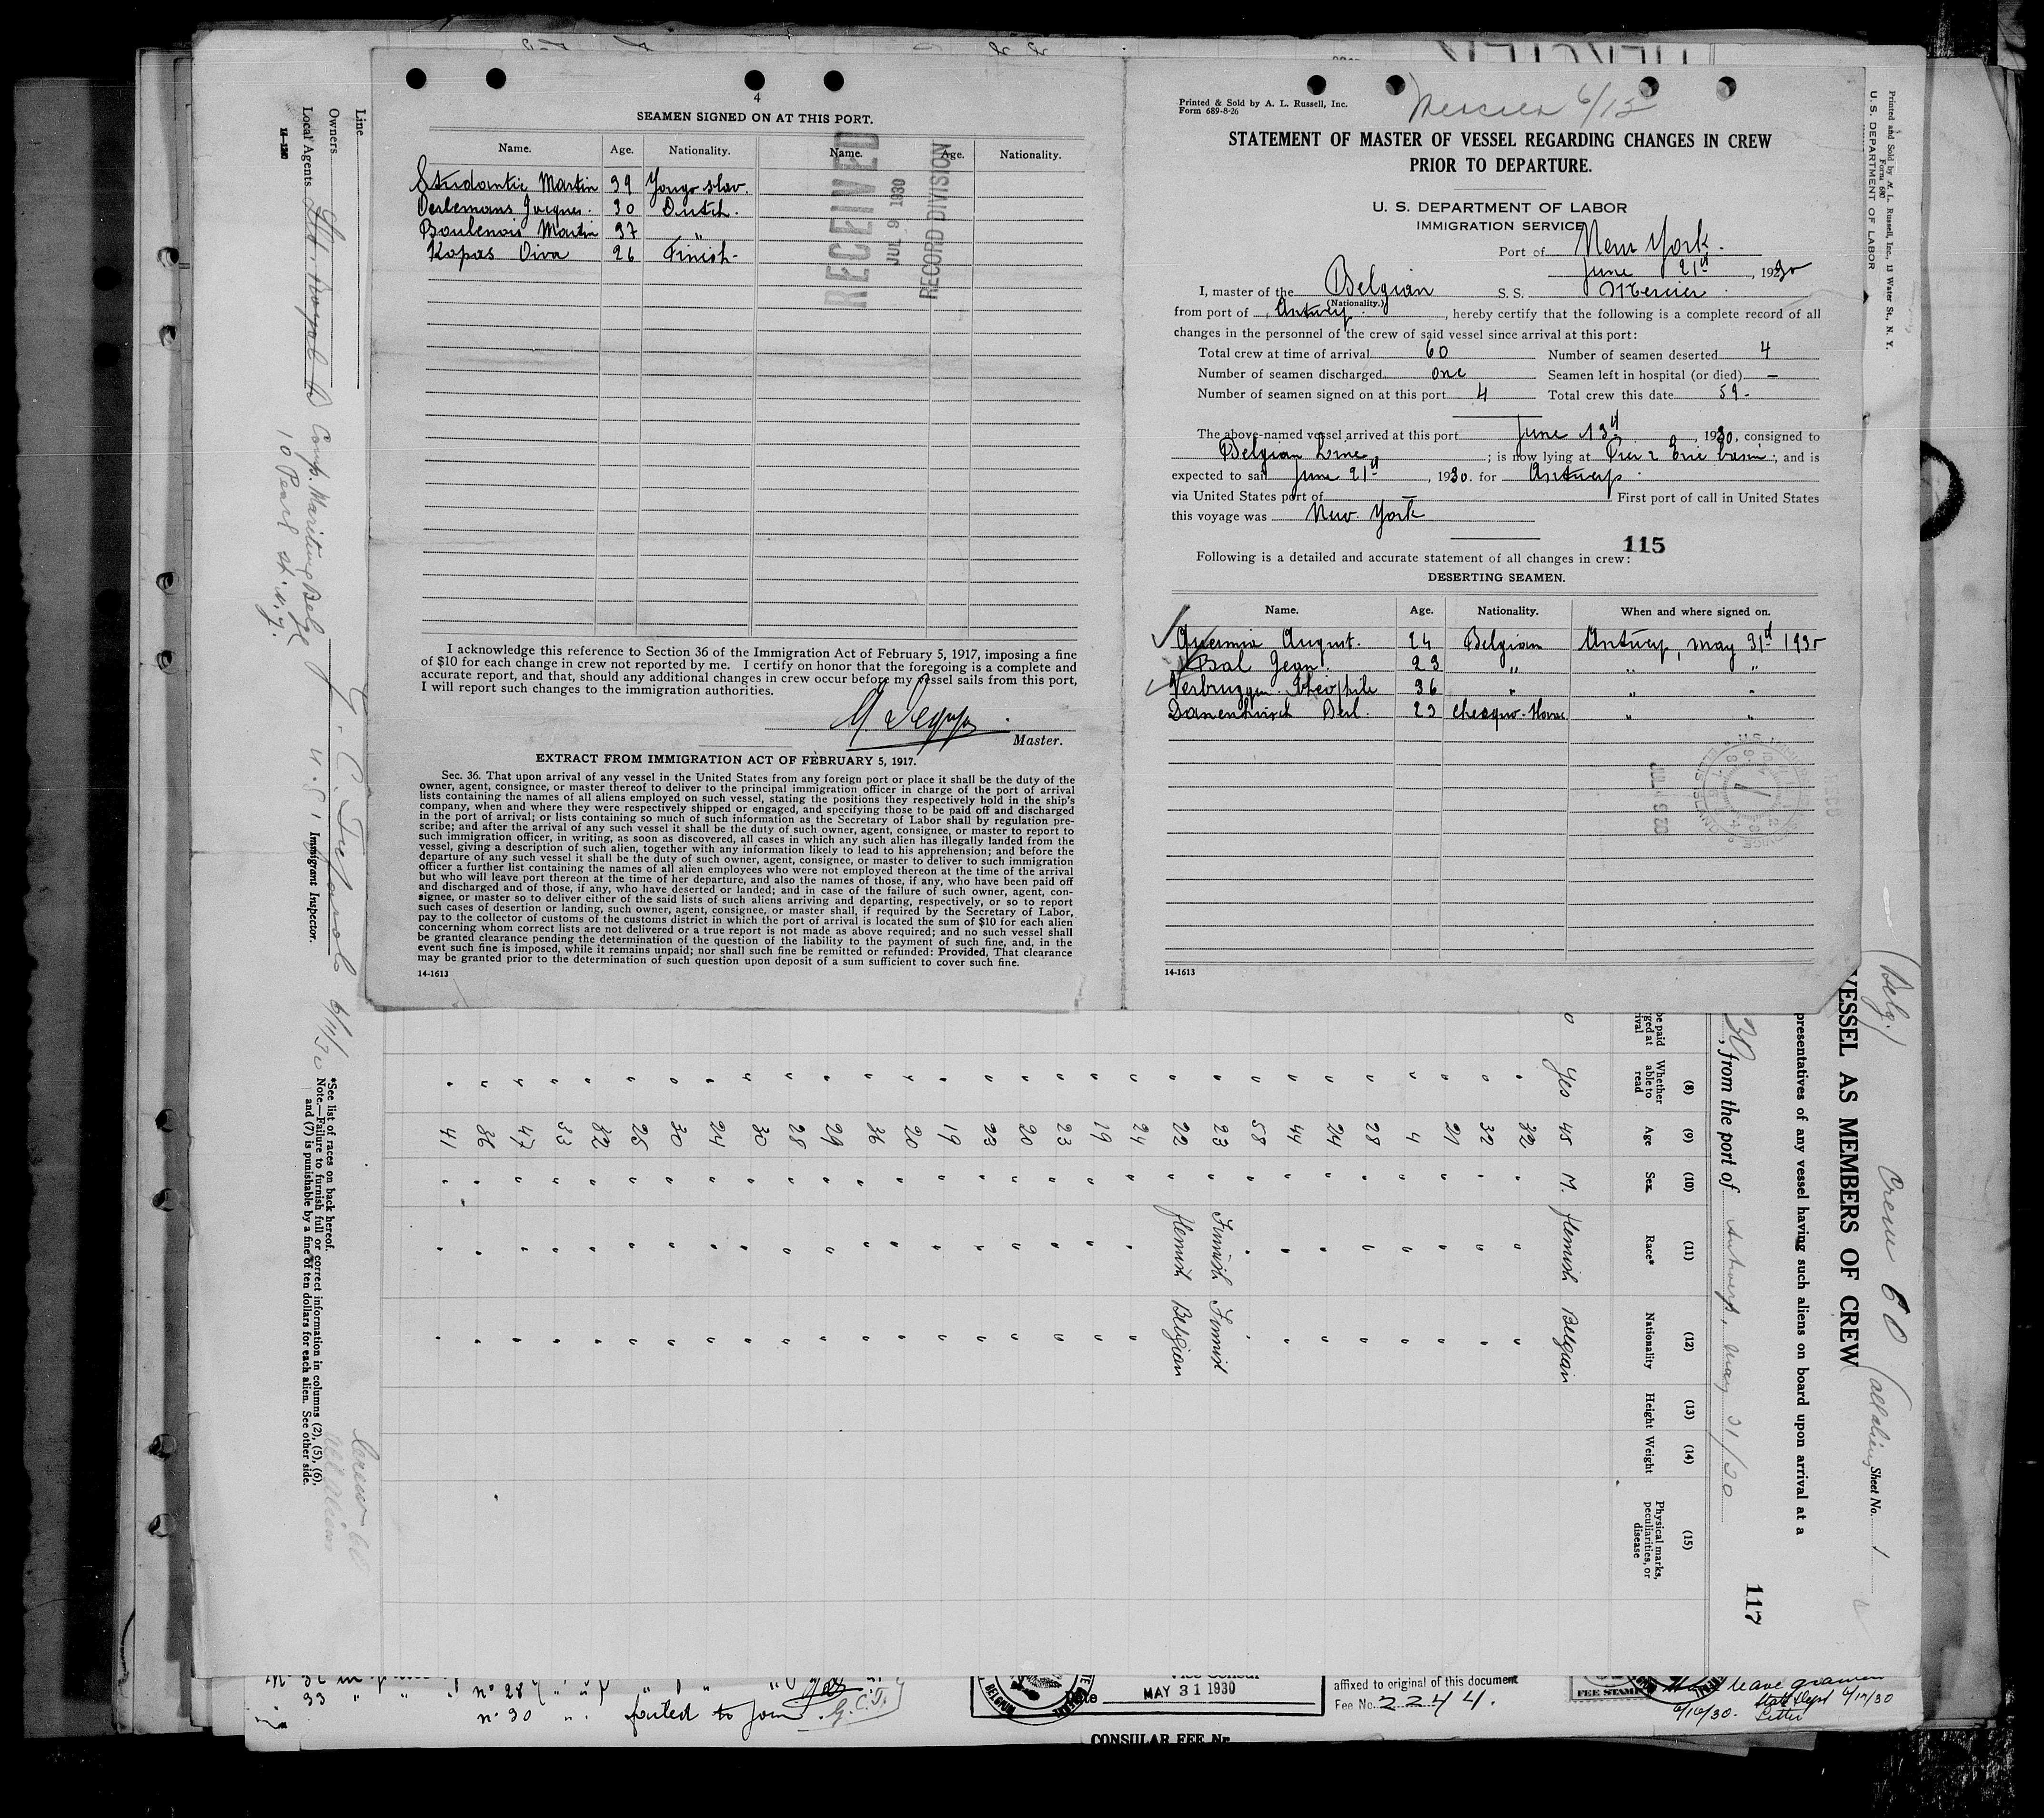 4
SEAMEN SIGNED ON AT THIS PORT.
Name. Age. Nationality. Name. Age. Nationality.
Martin 39 Yougo slav.
Oerlemans Jacques. 30 Dutch.
Boulenois Martin 37 "
Kopas Oiva 26 Finish.
RECEIVED
JUL 9 1930
RECORD DIVISION
I acknowledge this reference to Section 36 of the Immigration Act of February 5, 1917, imposing a fine
of $10 for each change in crew not reported by me. I certify on honor that the foregoing is a complete and
accurate report, and that, should any additional changes in crew occur before my vessel sails from this port,
I will report such changes to the immigration authorities.
Master.
EXTRACT FROM IMMIGRATION ACT OF FEBRUARY 5, 1917.
Sec. 36. That upon arrival of any vessel in the United States from any foreign port or place it shall be the duty of the
owner, agent, consignee, or master thereof to deliver to the principal immigration officer in charge of the port of arrival
lists containing the names of all aliens employed on such vessel, stating the positions they respectively hold in the ship's
company, when and where they were respectively shipped or engaged, and specifying those to be paid off and discharged
in the port of arrival; or lists containing so much of such information as the Secretary of Labor shall by regulation pre-
scribe; and after the arrival of any such vessel it shall be the duty of such owner, agent, consignee, or master to report to
such immigration officer, in writing, as soon as discovered, all cases in which any such alien has illegally landed from the
vessel, giving a description of such alien, together with any information likely to lead to his apprehension; and before the
departure of any such vessel it shall be the duty of such owner, agent, consignee, or master to deliver to such immigration
officer a further list containing the names of all alien employees who were not employed thereon at the time of the arrival
but who will leave port thereon at the time of her departure, and also the names of those, if any, who have been paid off
and discharged and of those, if any, who have deserted or landed; and in case of the failure of such owner, agent, con-
signee, or master so to deliver either of the said lists of such aliens arriving and departing, respectively, or so to report
such cases of desertion or landing, such owner, agent, consignee, or master shall, if required by the Secretary of Labor,
pay to the collector of customs of the customs district in which the port of arrival is located the sum of $10 for each alien
concerning whom correct lists are not delivered or a true report is not made as above required; and no such vessel shall
be granted clearance pending the determination of the question of the liability to the payment of such fine, and, in the
event such fine is imposed, while it remains unpaid; nor shall such fine be remitted or refunded: Provided, That clearance
may be granted prior to the determination of such question upon deposit of a sum sufficient to cover such fine.
14-1613
Printed & Sold by A. L. Russell, Inc.
Form 689-8-26
Mercier 6/13
STATEMENT OF MASTER OF VESSEL REGARDING CHANGES IN CREW
PRIOR TO DEPARTURE.
U. S. DEPARTMENT OF LABOR
IMMIGRATION SERVICE
Port of New York.
June 21st, 1930
I, master of the Belgian S. S. Mercier.
(Nationality.)
from port of Antwerp, hereby certify that the following is a complete record of all
changes in the personnel of the crew of said vessel since arrival at this port:
Total crew at time of arrival 60 Number of seamen deserted 4
Number of seamen discharged one Seamen left in hospital (or died) —
Number of seamen signed on at this port 4 Total crew this date 59.
The above-named vessel arrived at this port June 13d, 1930, consigned to
Belgian Line; is now lying at Pier 2 Erie basin; and is
expected to sail June 21st, 1930. for Antwerp.
via United States port of — First port of call in United States
this voyage was New York
115
Following is a detailed and accurate statement of all changes in crew:
DESERTING SEAMEN.
Name. Age. Nationality. When and where signed on.
August. 24 Belgian Antwerp, may 31st 1930
Bal Jean. 23 " " "
Verbruggen Theophile 36 " " "
23 " "
14-1613
Line
Owners
Local Agents Comp. Maritime Belge
10 Pearl st. N.y.
14-120
U.S. Immigrant Inspector.
6/11/30
*See list of races on back hereof.
Note.—Failure to furnish full or correct information in columns (2), (5), (6),
and (7) is punishable by a fine of ten dollars for each alien. See other side.
Crew 60
all aliens
Printed and Sold by A. L. Russell, Inc., 13 Water St., N. Y.
Form 680
U. S. DEPARTMENT OF LABOR
(Belg.) Crew 60 (all aliens Sheet No. 1
VESSEL AS MEMBERS OF CREW
presentatives of any vessel having such aliens on board upon arrival at a
30, from the port of Antwerp, May 31/30
117
(8) (9) (10) (11) (12) (13) (14) (15)
Whether able to read Age Sex Race* Nationality Height Weight Physical marks, peculiarities, or disease
Yes 45 M. flemish Belgian
" 32 " " "
" 32 " " "
" 21 " " "
" 4 " " "
" 28 " " "
" 24 " " "
" 44 " " "
" 58 " " "
" 23 " Finnish Finnish
" 22 " flemish Belgian
" 24 " " "
" 19 " " "
" 23 " " "
" 20 " " "
" 23 " " "
" 19 " " "
" 20 " " "
" 36 " " "
" 29 " " "
" 28 " " "
" 30 " " "
" 24 " " "
" 30 " " "
" 25 " " "
" 32 " " "
" 33 " " "
" 47 " " "
" 36 " " "
" 41 " " "
33 " " no 30 " failed to join. G.C.T.
Date MAY 31 1930
affixed to original of this document
Fee No. 2244.
CONSULAR FEE
FEE STAMP
leave granted
6/16/30. Letter